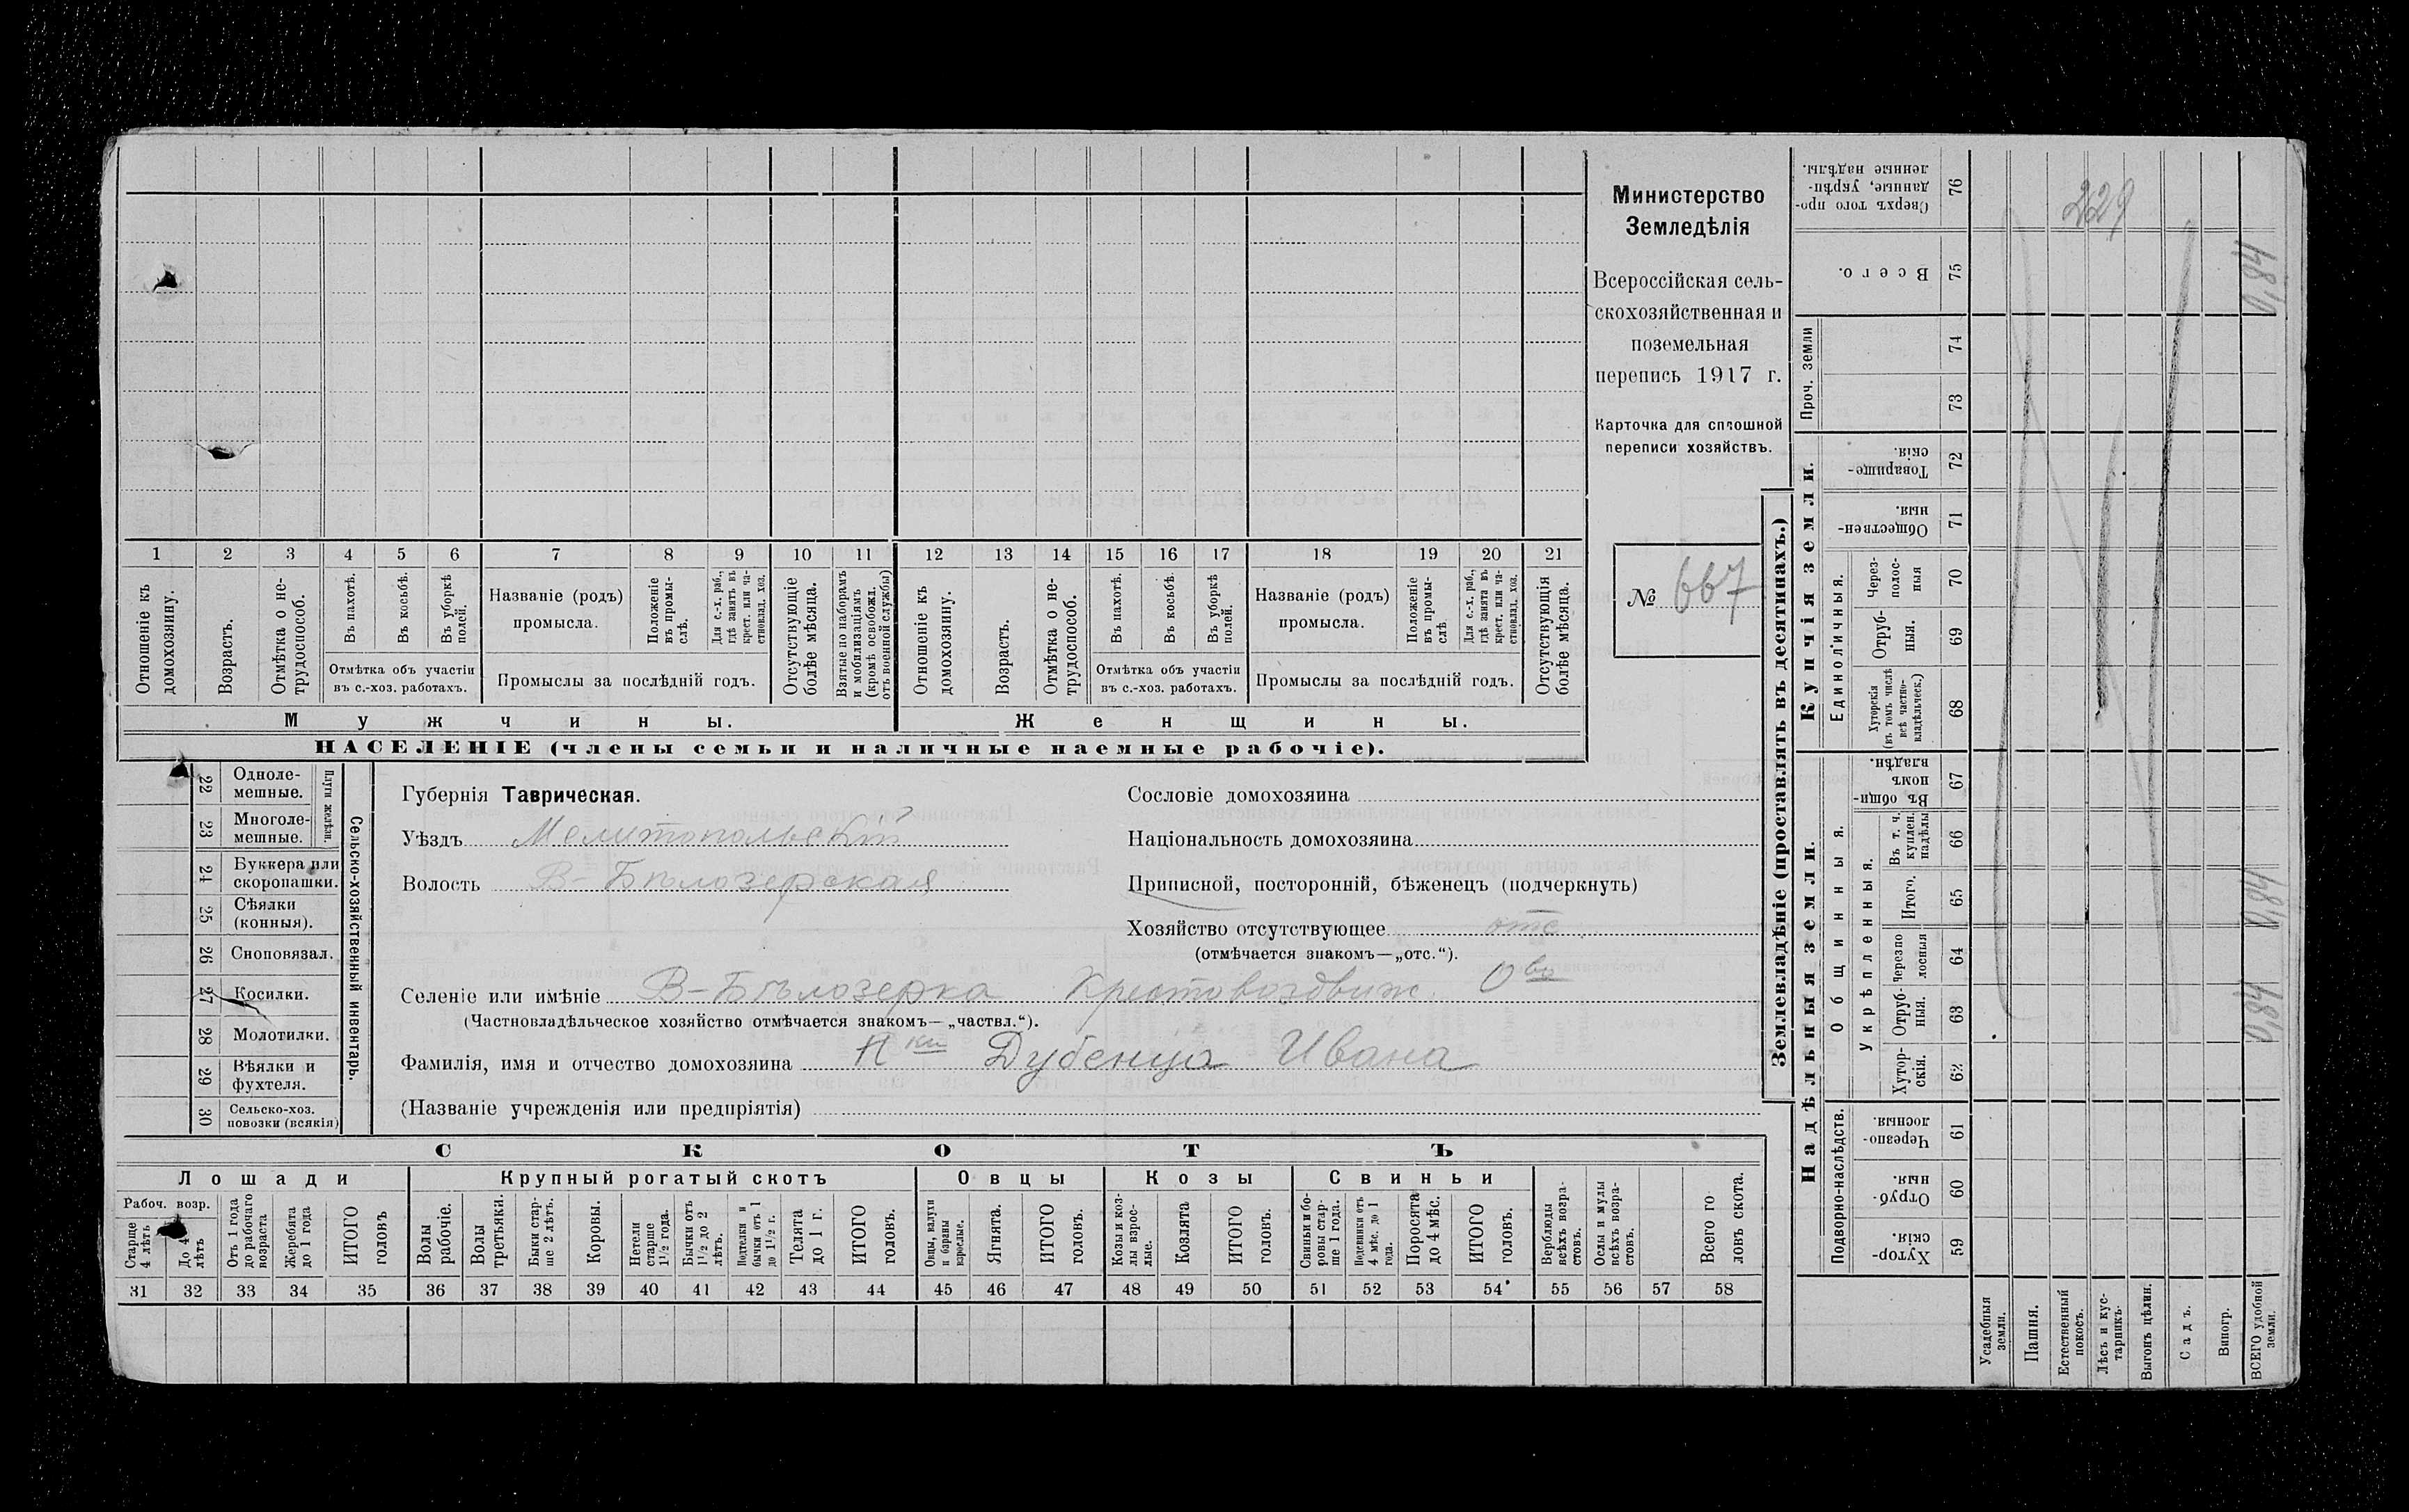 Министерство
Земледѣлія
Всероссійская сель-
скохозяйственная и
поземельная
перепись 1917 г.
Карточка для сплошной
переписи хозяйствъ.
№ 667
1 2 3 4 5 6 7 8 9 10 11 12 13 14 15 16 17 18 19 20 21
Отношеніе къ домохозяину.
Возрастъ.
Отмѣтка о не-трудоспособ.
Въ пахотѣ.
Въ косьбѣ.
Въ уборкѣ полей.
Отмѣтка объ участіи
въ с.-хоз. работахъ.
Названіе (родъ)
промысла.
Положеніе въ промы-слѣ.
Для с.-х. раб., гдѣ занятъ въ крест. или ча-стновлад. хоз.
Промыслы за послѣдній годъ.
Отсутствующіе болѣе мѣсяца.
Взятые по наборамъ и мобилизаціямъ (кромѣ освобожд. отъ военной службы)
Отношеніе къ домохозяину.
Возрастъ.
Отмѣтка о не-трудоспособ.
Въ пахотѣ.
Въ косьбѣ.
Въ уборкѣ полей.
Отмѣтка объ участіи
въ с.-хоз. работахъ.
Названіе (родъ)
промысла.
Положеніе въ промы-слѣ.
Для с.-х. раб., гдѣ занята въ крест. или ча-стновлад. хоз.
Промыслы за послѣдній годъ.
Отсутствующія болѣе мѣсяца.
Мужчины.
Женщины.
НАСЕЛЕНІЕ (члены семьи и наличные наемные рабочіе).
22 Одноле-мешные.
23 Многоле-мешные.
Плуги желѣзн.
24 Буккера или скоропашки.
25 Сѣялки (конныя).
26 Сноповязал.
27 Косилки.
28 Молотилки.
29 Вѣялки и фухтеля.
30 Сельско-хоз. повозки (всякія)
Сельско-хозяйственный инвентарь.
Губернія Таврическая.
Уѣздъ Мелитопольскій
Волость В-Бѣлозерская
Сословіе домохозяина
Національность домохозяина
Приписной, посторонній, бѣженецъ (подчеркнуть)
Хозяйство отсутствующее отс.
(отмѣчается знакомъ—„отс.“).
Селеніе или имѣніе В-Бѣлозерка Крестовоздвиж. Ово
(Частновладѣльческое хозяйство отмѣчается знакомъ—„частвл.“).
Фамилія, имя и отчество домохозяина Нки Дубенца Ивана
(Названіе учрежденія или предпріятія)
СКОТЪ
Лошади
Крупный рогатый скотъ
Овцы
Козы
Свиньи
Рабоч. возр.
Старше 4 лѣтъ
До 4 лѣтъ
Отъ 1 года до рабочаго возраста
Жеребята до 1 года
ИТОГО головъ
Волы рабочіе.
Волы третьяки.
Быки стар-ше 2 лѣтъ.
Коровы.
Нетели старше 1½ года.
Бычки отъ 1½ до 2 лѣтъ.
Подтелки и бычки отъ 1 до 1½ г.
Телята до 1 г.
ИТОГО головъ.
Овцы, валухи и бараны взрослые.
Ягнята.
ИТОГО головъ.
Козы и коз-лы взрос-лые.
Козлята
ИТОГО головъ.
Свиньи и бо-ровы стар-ше 1 года.
Подсвинки отъ 4 мѣс. до 1 года.
Поросята до 4 мѣс.
ИТОГО головъ.
Верблюды всѣхъ возра-стовъ.
Ослы и мулы всѣхъ возра-стовъ.
Всего го ловъ скота.
31 32 33 34 35 36 37 38 39 40 41 42 43 44 45 46 47 48 49 50 51 52 53 54 55 56 57 58
Землевладѣніе (проставлять въ десятинахъ.)
Сверхъ того про-данные, укрѣп-ленные надѣлы. 76
229
Всего. 75
0,84
Проч. земли
74
73
Купчія земли.
Товарище-скія. 72
Обществен-ныя. 71
Единоличныя.
Через-полос-ныя 70
Отруб-ныя. 69
Хуторскія (въ томъ числѣ всѣ частно-владѣльческ.) 68
Надѣльныя земли.
Общинныя.
Въ общи-номъ владѣн. 67
Укрѣпленныя.
Въ т. ч. куплен. надѣлы 66
Итого. 65
0,84
Черезпо лосныя 64
Отруб-ныя. 63
0,84
Хутор-скія. 62
Подворно-наслѣдств.
Черезпо-лосныя. 61
Отруб-ныя. 60
Хутор-скія. 59
Усадебныя земли.
Пашня.
Естественный покосъ.
Лѣсъ и кус-тарникъ.
Выгонъ цѣлин.
Садъ.
Виногр.
ВСЕГО удобной земли.